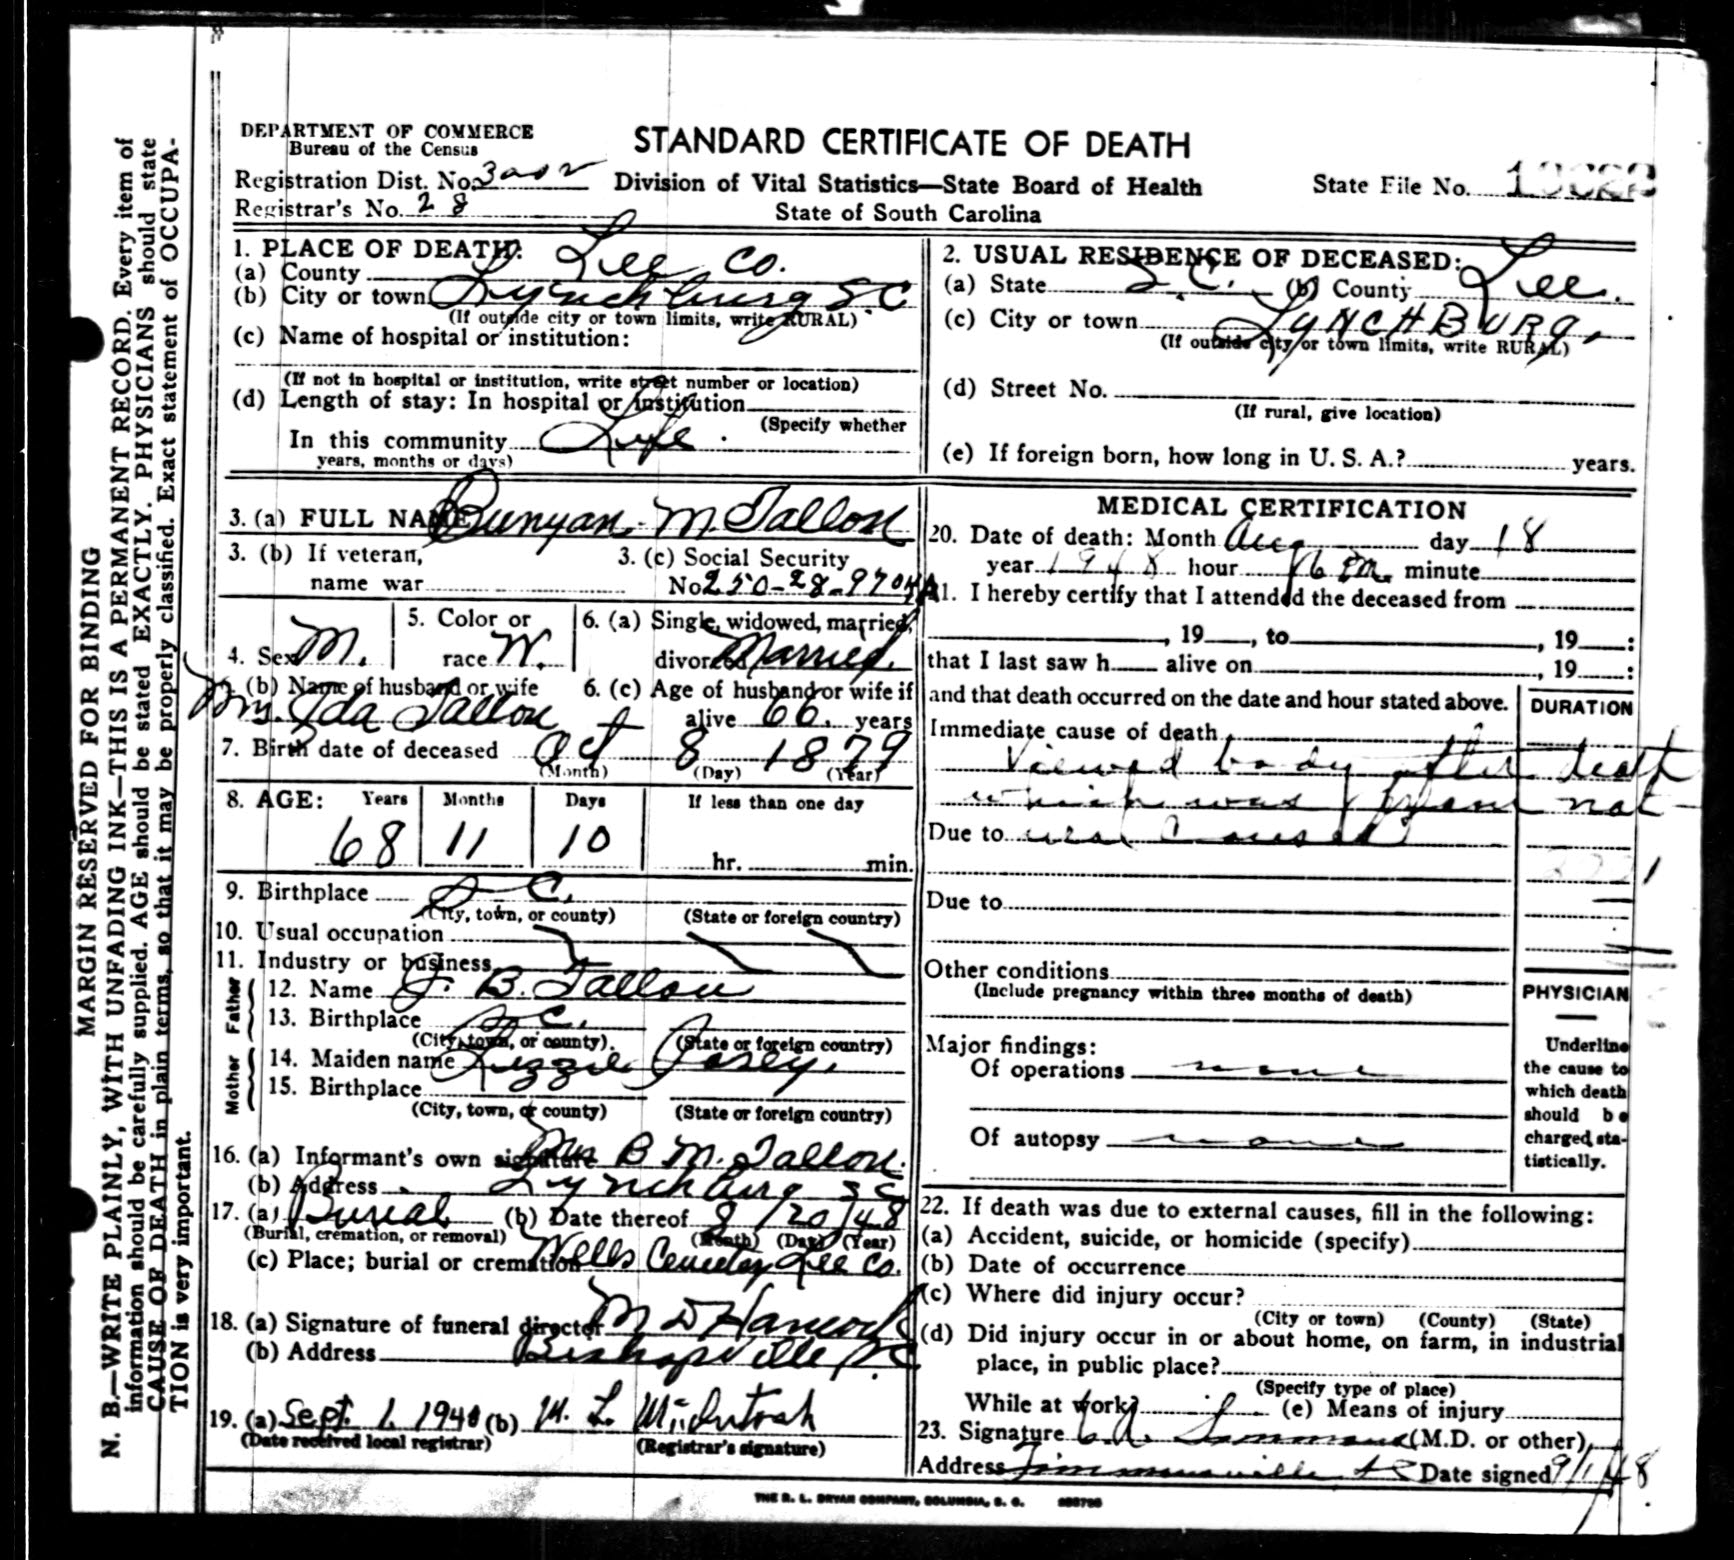 DEPARTMENT OF COMMERCE
Bureau of the Census
STANDARD CERTIFICATE OF DEATH
Registration Dist. No. 3902
Registrar's No. 28
Division of Vital Statistics—State Board of Health
State of South Carolina
State File No.
1. PLACE OF DEATH:
(a) County Lee Co.
(b) City or town Lynchburg S C
(If outside city or town limits, write RURAL)
(c) Name of hospital or institution:
(If not in hospital or institution, write street number or location)
(d) Length of stay: In hospital or institution
(Specify whether
In this community Life.
years, months or days)
2. USUAL RESIDENCE OF DECEASED:
(a) State S. C. (b) County Lee.
(c) City or town LYNCHBURG,
(If outside city or town limits, write RURAL)
(d) Street No.
(If rural, give location)
(e) If foreign born, how long in U. S. A.? years.
3. (a) FULL NAME Bunyan M Tallon
3. (b) If veteran,
name war
3. (c) Social Security
No. 250-28-970
4. Sex M.
5. Color or
race W.
6. (a) Single, widowed, married,
divorced Married.
6. (b) Name of husband or wife
Mrs. Ida Tallon
6. (c) Age of husband or wife if
alive 66. years
7. Birth date of deceased Oct 8 1879
(Month) (Day) (Year)
8. AGE: Years Months Days If less than one day
68 11 10 hr. min.
9. Birthplace S C.
(City, town, or county) (State or foreign country)
10. Usual occupation
11. Industry or business
Father
12. Name J. B. Tallon
13. Birthplace S C.
(City, town, or county). (State or foreign country)
Mother
14. Maiden name Lizzie Josey.
15. Birthplace
(City, town, or county) (State or foreign country)
16. (a) Informant's own signature Mrs B M. Tallon.
(b) Address Lynchburg S C
17. (a) Burial (b) Date thereof 8/20/48
(Burial, cremation, or removal) (Month) (Day) (Year)
(c) Place; burial or cremation Wells Cemetery Lee Co.
18. (a) Signature of funeral director M D Hancock
(b) Address Bishopville S. C
19. (a) Sept. 1. 1948 (b) M. L. McIntosh
(Date received local registrar) (Registrar's signature)
MEDICAL CERTIFICATION
20. Date of death: Month Aug day 18
year 1948 hour minute
21. I hereby certify that I attended the deceased from
, 19 , to , 19 :
that I last saw h alive on , 19 :
and that death occurred on the date and hour stated above.
DURATION
Immediate cause of death
Viewed body after death
which was from nat-
Due to ural causes
Due to
Other conditions
(Include pregnancy within three months of death)
PHYSICIAN
Major findings:
Of operations none
Of autopsy none
Underline
the cause to
which death
should be
charged sta-
tistically.
22. If death was due to external causes, fill in the following:
(a) Accident, suicide, or homicide (specify)
(b) Date of occurrence
(c) Where did injury occur?
(City or town) (County) (State)
(d) Did injury occur in or about home, on farm, in industrial
place, in public place?
(Specify type of place)
While at work? (e) Means of injury
23. Signature (M.D. or other)
Address Timmonsville S C Date signed 9/1/48
THE R. L. BRYAN COMPANY, COLUMBIA, S. C.
MARGIN RESERVED FOR BINDING
N. B.—WRITE PLAINLY, WITH UNFADING INK—THIS IS A PERMANENT RECORD. Every item of
information should be carefully supplied. AGE should be stated EXACTLY. PHYSICIANS should state
CAUSE OF DEATH in plain terms, so that it may be properly classified. Exact statement of OCCUPA-
TION is very important.